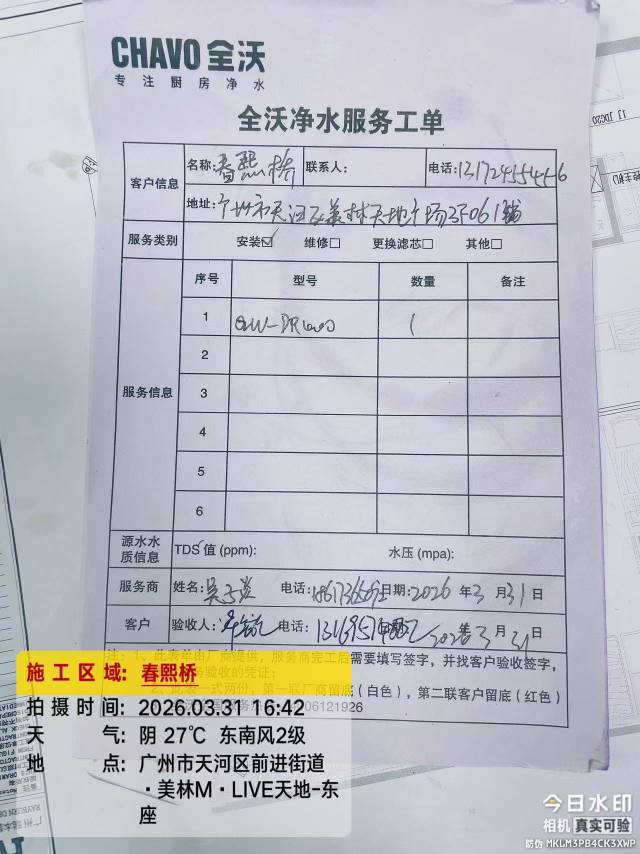 CHAVO 全沃
专注厨房净水
全沃净水服务工单
客户信息
名称: 春熙桥 联系人: 电话: 13172455456
地址: 广州市天河区美林天地广场3F061铺
服务类别 安装☑ 维修□ 更换滤芯□ 其他□
服务信息
序号 型号 数量 备注
1 QW-DR1000 1
2
3
4
5
6
源水水质信息 TDS值 (ppm): 水压 (mpa):
服务商 姓名: 电话: 日期: 2026年3月31日
客户 验收人: 电话: 2026年3月31日
注: 1、此表单由厂商提供, 服务商完工后需要填写签字, 并找客户验收签字,
验收的凭证;
2、此表一式两份, 第一联厂商留底 (白色), 第二联客户留底 (红色)
06121926
施工区域: 春熙桥
拍摄时间: 2026.03.31 16:42
天气: 阴 27℃ 东南风2级
地点: 广州市天河区前进街道
·美林M·LIVE天地-东
座
今日水印
相机 真实可验
防伪 MKLM3PB4CK3XWP